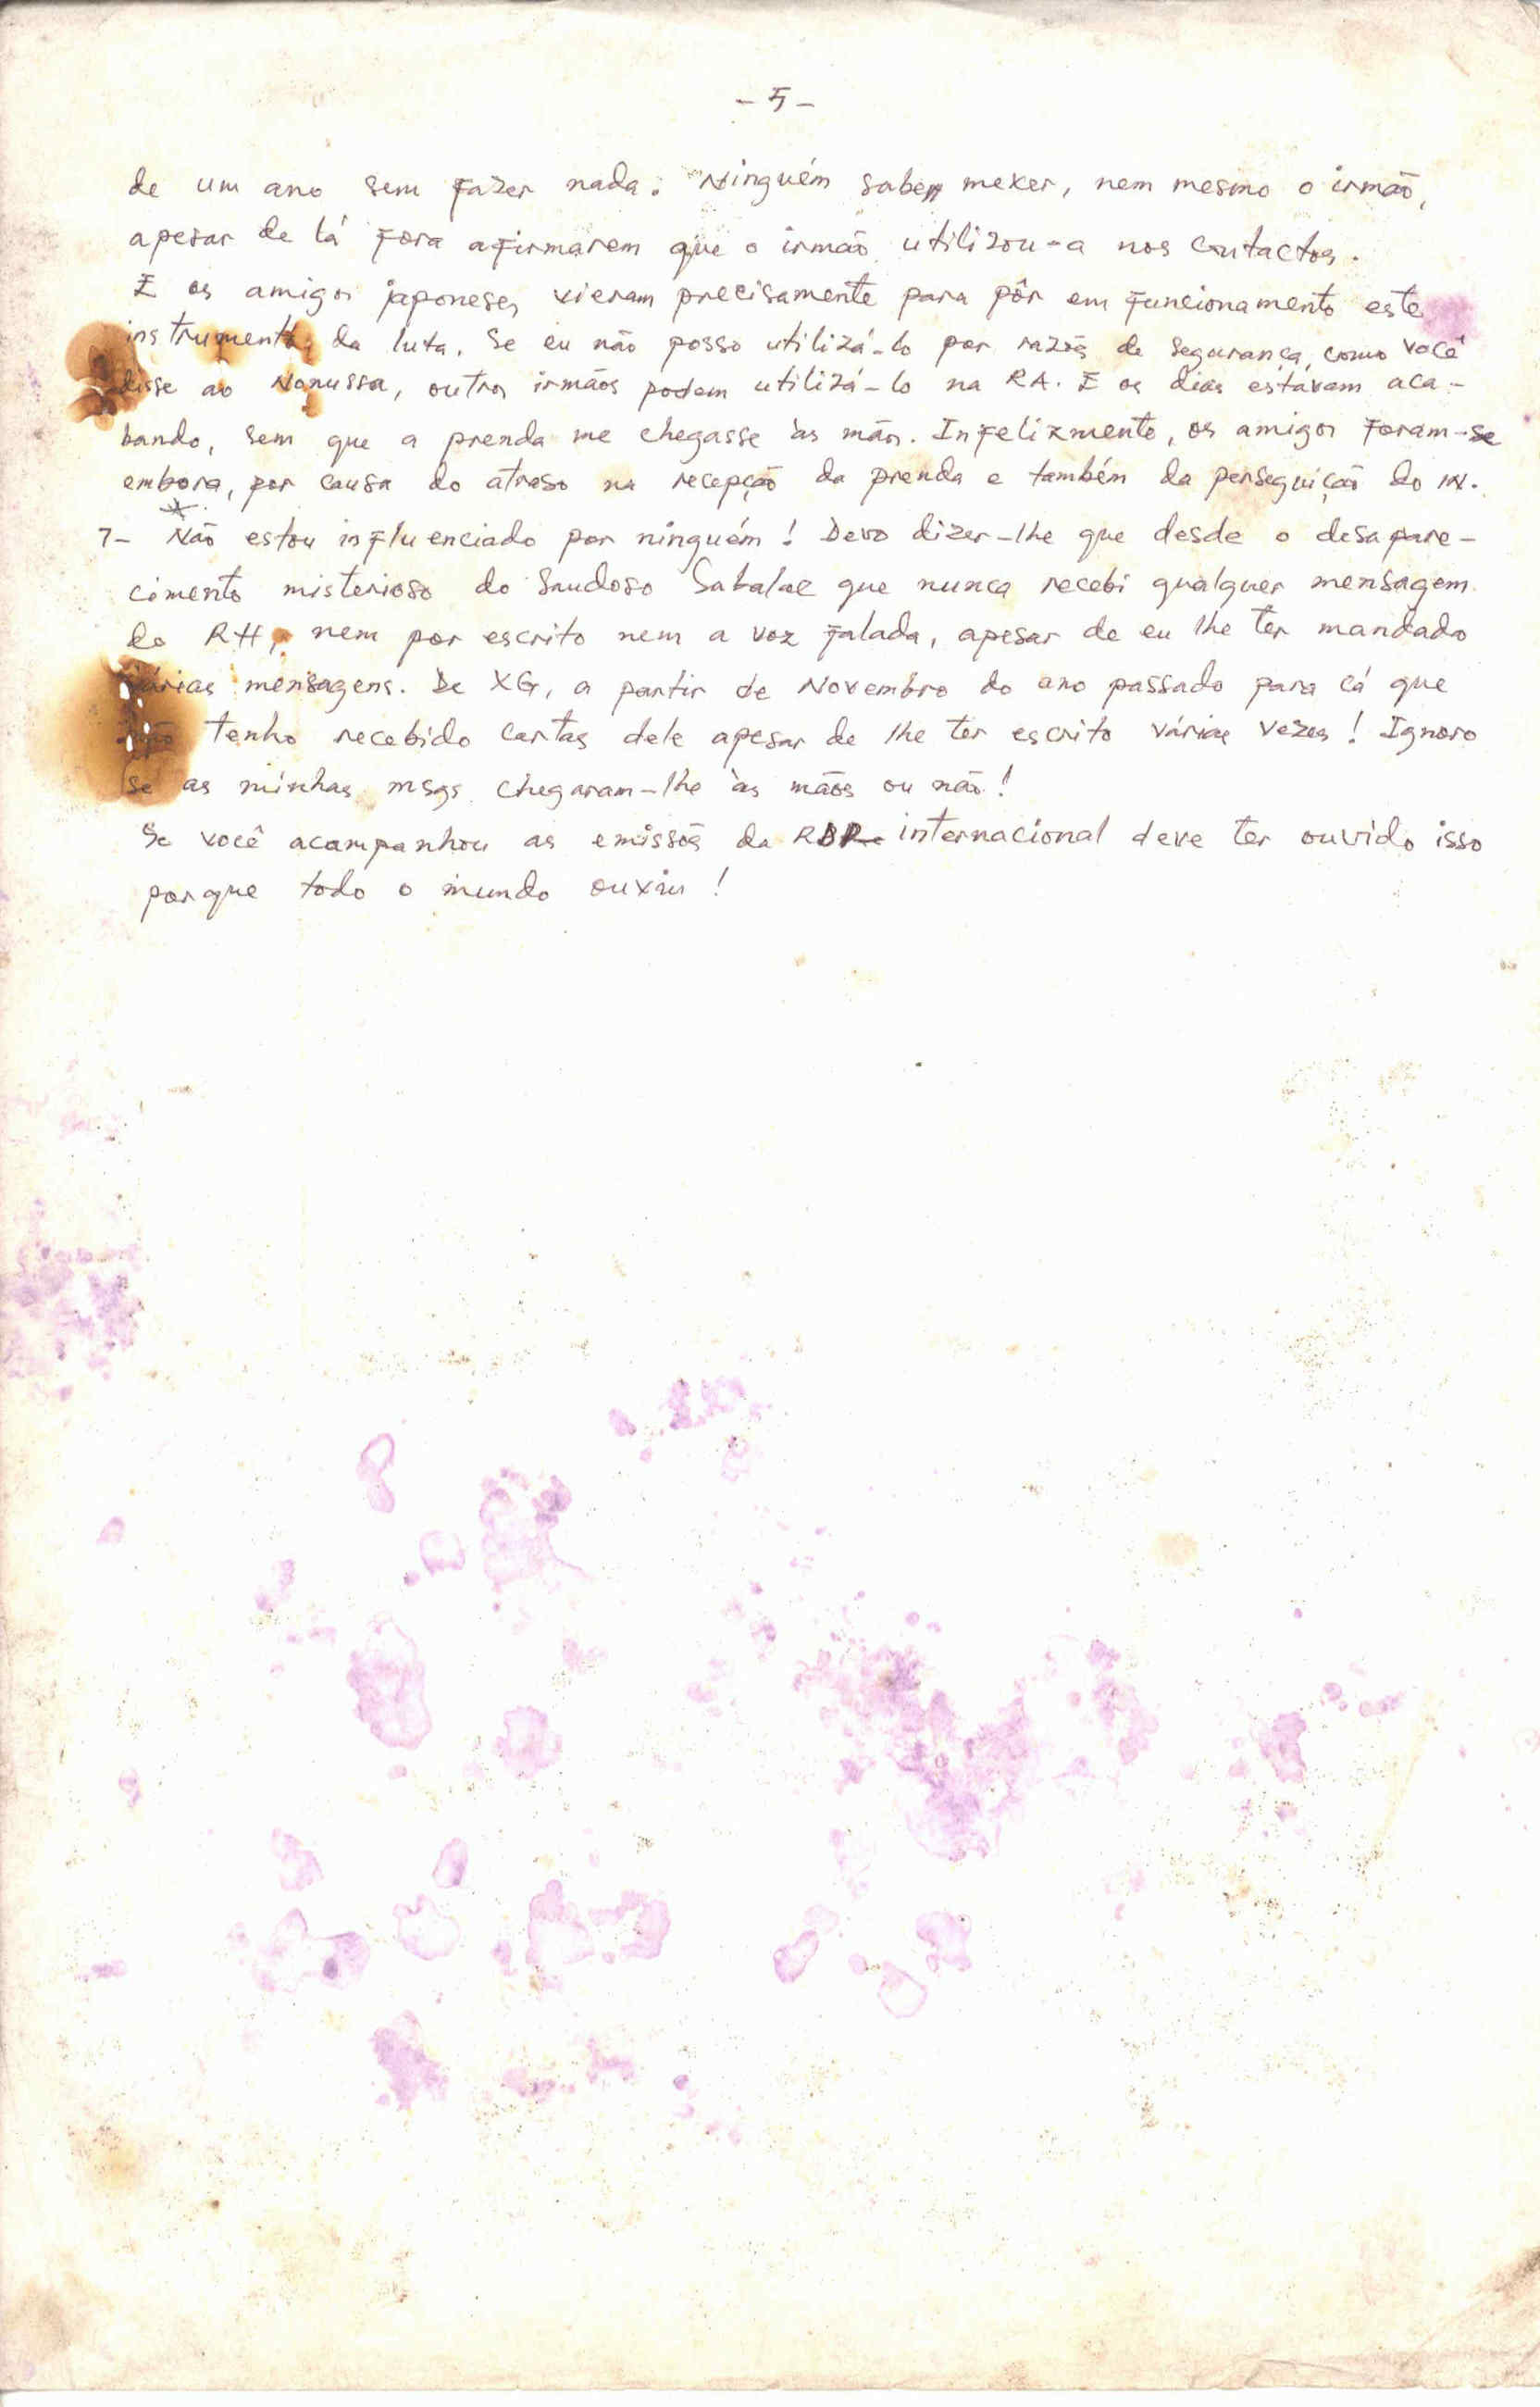 - 5 -
de um ano sem fazer nada. Ninguém sabe mexer, nem mesmo o irmão,
apesar de lá fora afirmarem que o irmão utilizou-a nos contactos.
E os amigos japoneses vieram precisamente para pôr em funcionamento este
instrumento da luta. Se eu não posso utilizá-lo por razõs de segurança, como você
disse ao Nonussa, outros irmãos podem utilizá-lo na RA. E os dias estavam aca-
bando, sem que a prenda me chegasse às mãos. Infelizmente, os amigos foram-se
embora, por causa do atraso na recepção da prenda e também da perseguição do IN.
7- Não estou influenciado por ninguém! Devo dizer-lhe que desde o desapare-
cimento misterioso do saudoso Sabalae que nunca recebi qualquer mensagem
do RH, nem por escrito nem a voz falada, apesar de eu lhe ter mandado
várias mensagens. De XG, a partir de Novembro do ano passado para cá que
não tenho recebido cartas dele apesar de lhe ter escrito várias vezes! Ignoro
se as minhas msgs chegaram-lhe às mãos ou não!
Se você acompanhou as emissõs da internacional deve ter ouvido isso
porque todo o mundo ouviu!